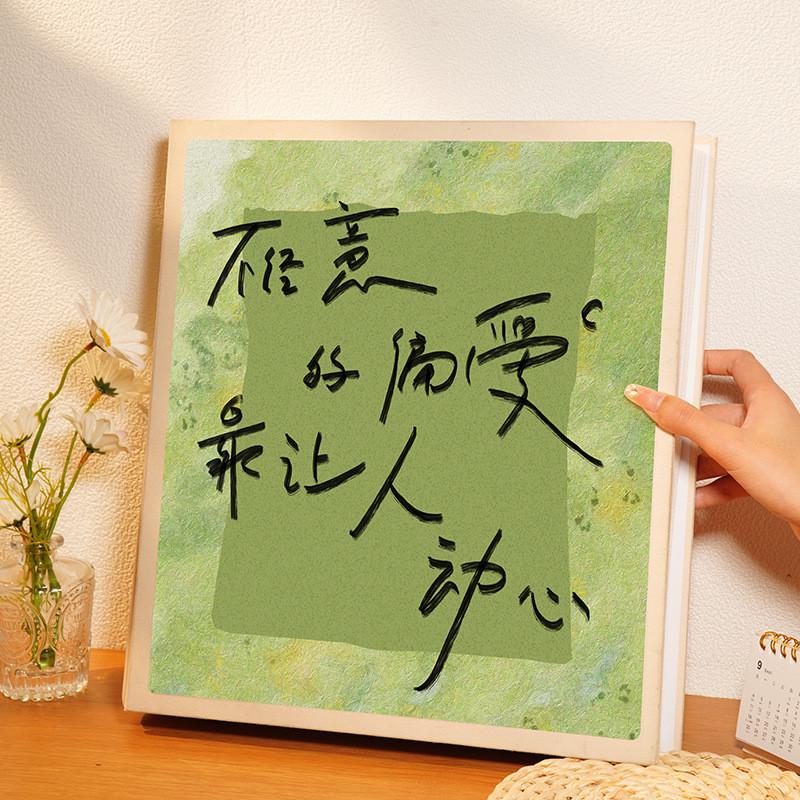 不经意
的偏爱
最让人
动心
9